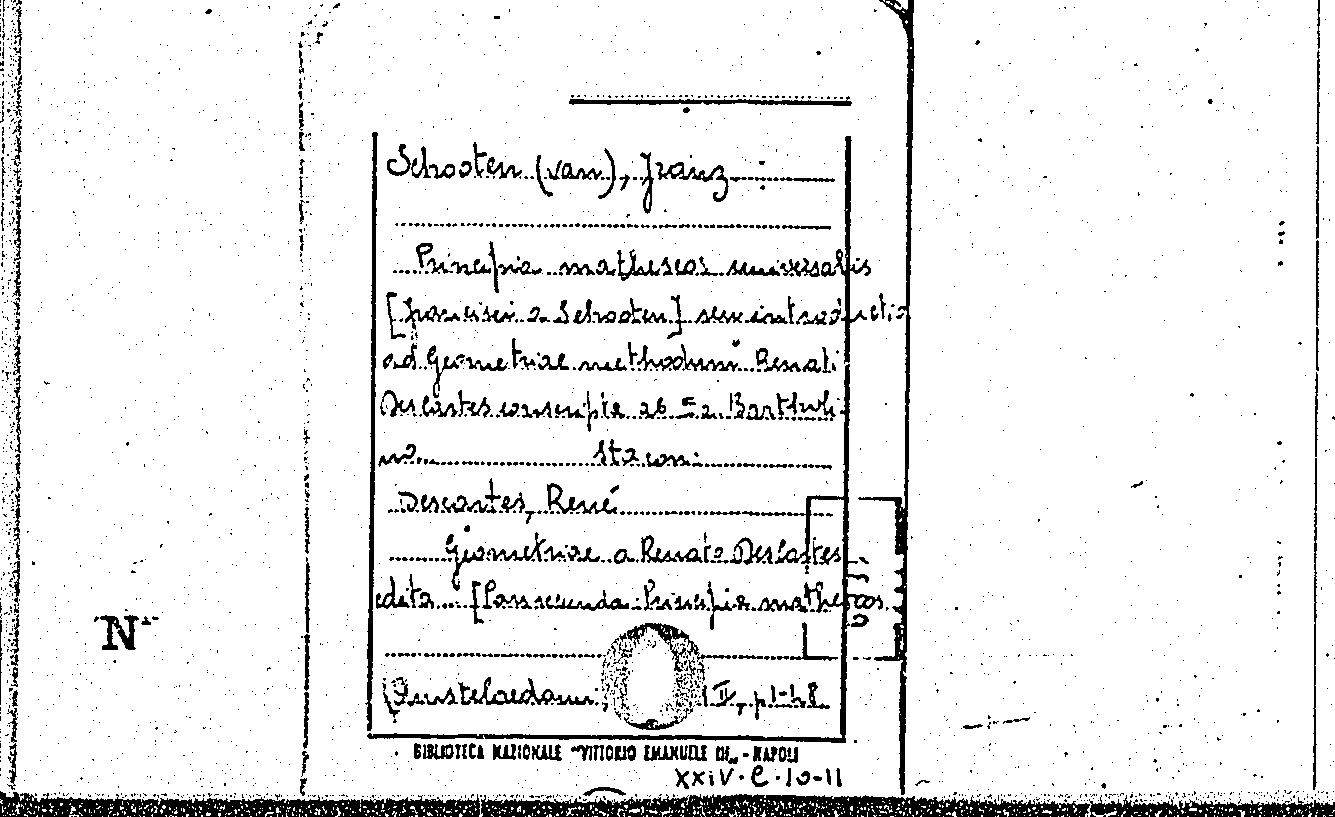 Schooten (van), Franz
Principia matheseos universalis
[Francisci a Schooten] seu introductio
ad Geometriae methodum Renati
Descartes conscripta ab Er. Bartholi-
no... Sta con:
Descartes, René
Geometriae a Renato Descartes
edita... [Pars secunda: Principia matheseos
N
(Amstelaedami, II, p. 1-48
BIBLIOTECA NAZIONALE "VITTORIO EMANUELE III" - NAPOLI
XXIV.C.10-11